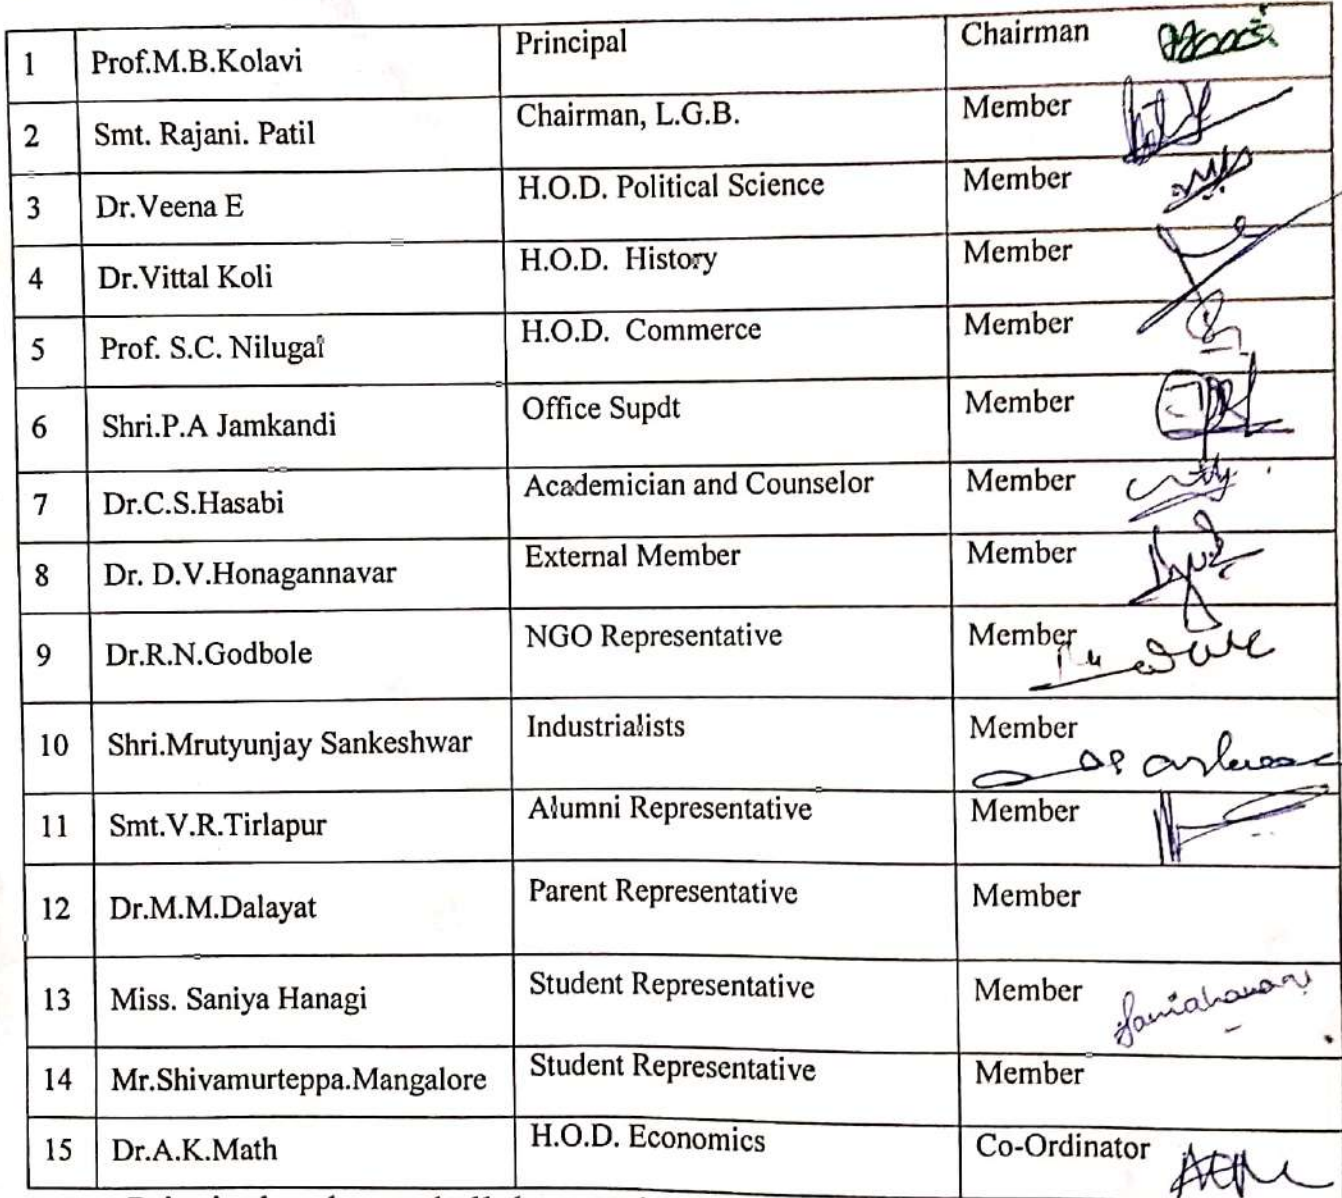 1 Prof.M.B.Kolavi Principal Chairman
2 Smt. Rajani. Patil Chairman, L.G.B. Member
3 Dr.Veena E H.O.D. Political Science Member
4 Dr.Vittal Koli H.O.D. History Member
5 Prof. S.C. Nilugal H.O.D. Commerce Member
6 Shri.P.A Jamkandi Office Supdt Member
7 Dr.C.S.Hasabi Academician and Counselor Member
8 Dr. D.V.Honagannavar External Member Member
9 Dr.R.N.Godbole NGO Representative Member
10 Shri.Mrutyunjay Sankeshwar Industrialists Member
11 Smt.V.R.Tirlapur Alumni Representative Member
12 Dr.M.M.Dalayat Parent Representative Member
13 Miss. Saniya Hanagi Student Representative Member
14 Mr.Shivamurteppa.Mangalore Student Representative Member
15 Dr.A.K.Math H.O.D. Economics Co-Ordinator